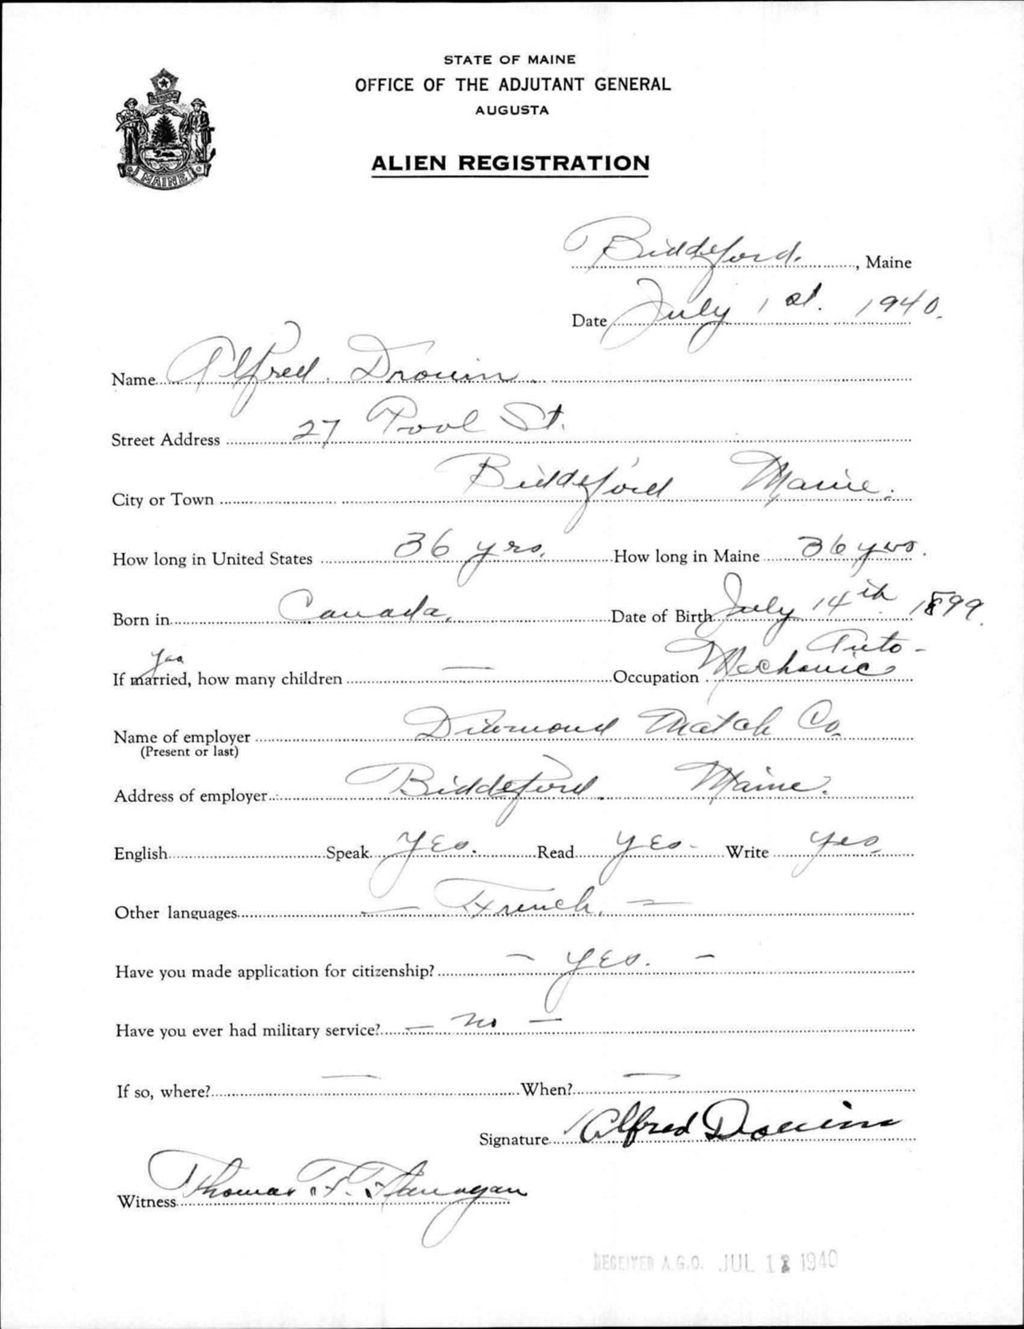 STATE OF MAINE
OFFICE OF THE ADJUTANT GENERAL
AUGUSTA
MAINE
ALIEN REGISTRATION
Biddeford, Maine
Date July 1st. 1940.
Name Alfred Drouin
Street Address 27 Pool St.
City or Town Biddeford Maine.
How long in United States 36 yrs. How long in Maine 36 yrs.
Born in Canada. Date of Birth July 14th 1899
Yes Auto-
If married, how many children — Occupation Mechanic
Name of employer Diamond Match Co.
(Present or last)
Address of employer Biddeford. Maine.
English Speak Yes. Read Yes- Write Yes.
Other languages — French. —
Have you made application for citizenship? — Yes. —
Have you ever had military service? — no —
If so, where? — When? —
Signature Alfred Drouin
Witness Thomas F. Flanagan
RECEIVED A.G.O. JUL 12 1940